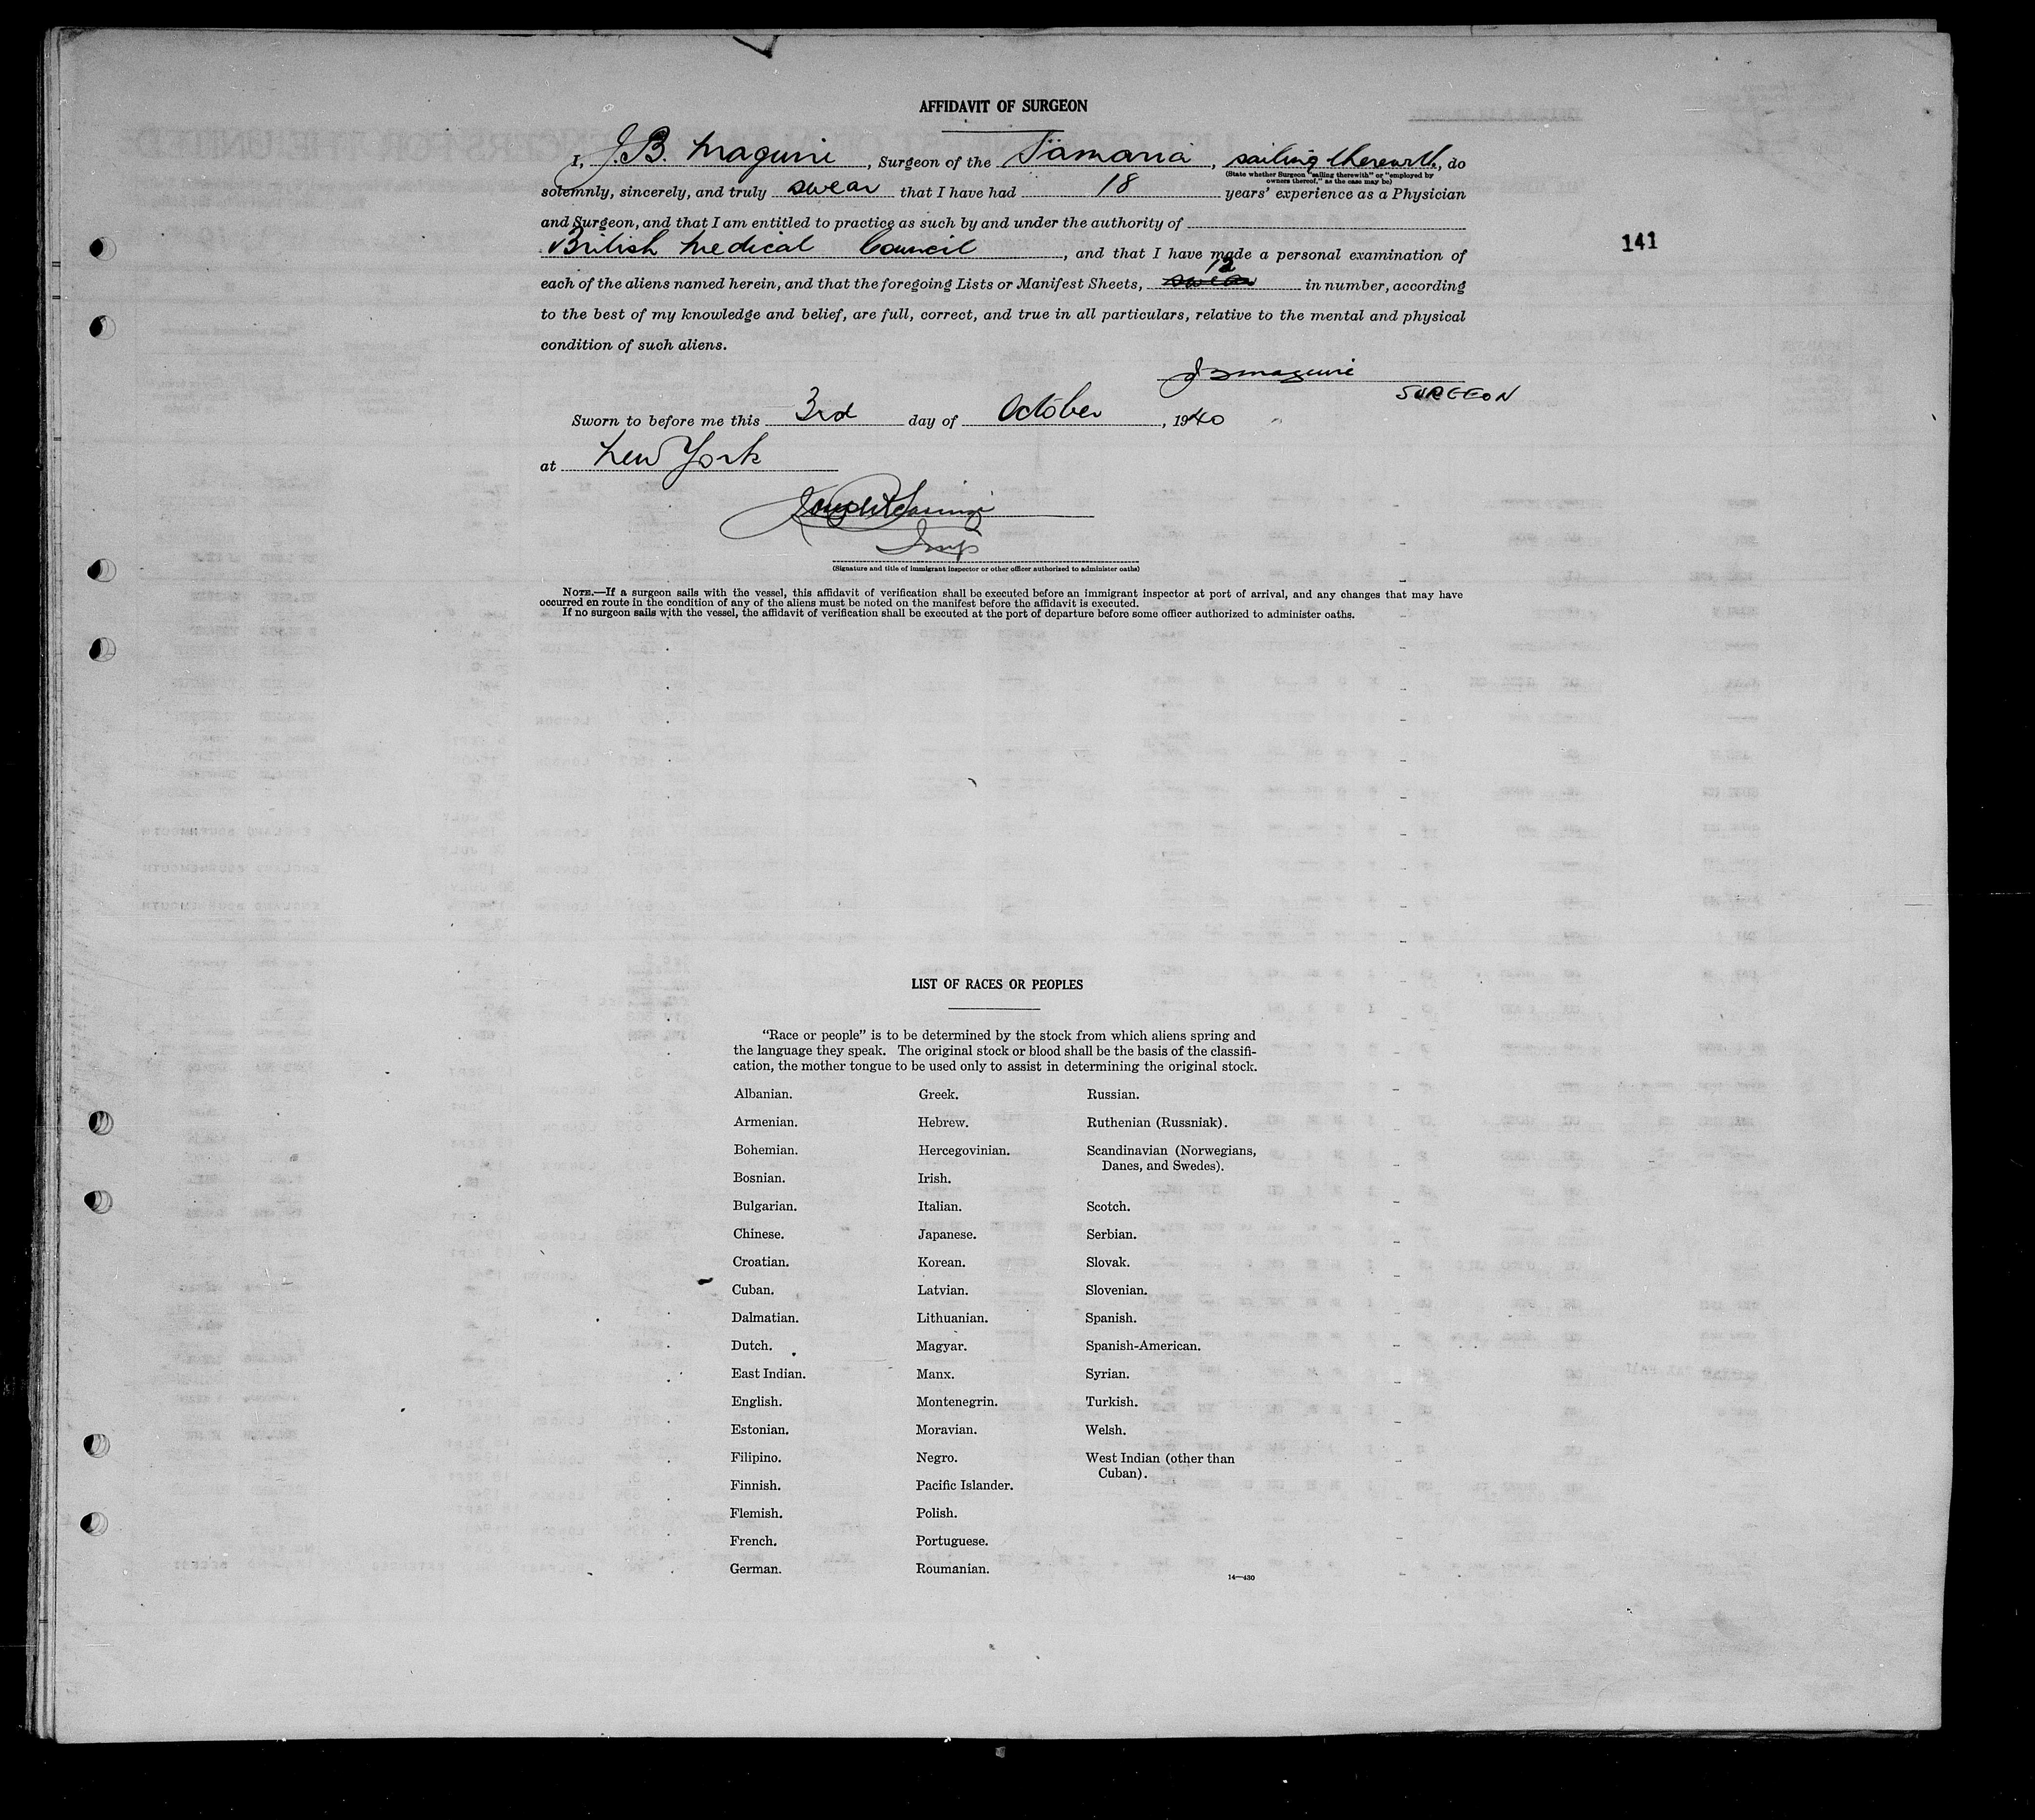 AFFIDAVIT OF SURGEON
I, J.B. Maguire, Surgeon of the Samaria, sailing therewith, do
(State whether Surgeon "sailing therewith" or "employed by
owners thereof," as the case may be)
solemnly, sincerely, and truly swear that I have had 18 years' experience as a Physician
and Surgeon, and that I am entitled to practice as such by and under the authority of
British Medical Council, and that I have made a personal examination of
12
each of the aliens named herein, and that the foregoing Lists or Manifest Sheets, swear in number, according
to the best of my knowledge and belief, are full, correct, and true in all particulars, relative to the mental and physical
condition of such aliens.
JBMaguire
SURGEON
Sworn to before me this 3rd day of October, 1940
at New York
Insp
(Signature and title of immigrant inspector or other officer authorized to administer oaths)
NOTE.—If a surgeon sails with the vessel, this affidavit of verification shall be executed before an immigrant inspector at port of arrival, and any changes that may have
occurred en route in the condition of any of the aliens must be noted on the manifest before the affidavit is executed.
If no surgeon sails with the vessel, the affidavit of verification shall be executed at the port of departure before some officer authorized to administer oaths.
141
LIST OF RACES OR PEOPLES
"Race or people" is to be determined by the stock from which aliens spring and
the language they speak. The original stock or blood shall be the basis of the classifi-
cation, the mother tongue to be used only to assist in determining the original stock.
Albanian.
Armenian.
Bohemian.
Bosnian.
Bulgarian.
Chinese.
Croatian.
Cuban.
Dalmatian.
Dutch.
East Indian.
English.
Estonian.
Filipino.
Finnish.
Flemish.
French.
German.
Greek.
Hebrew.
Hercegovinian.
Irish.
Italian.
Japanese.
Korean.
Latvian.
Lithuanian.
Magyar.
Manx.
Montenegrin.
Moravian.
Negro.
Pacific Islander.
Polish.
Portuguese.
Roumanian.
Russian.
Ruthenian (Russniak).
Scandinavian (Norwegians,
Danes, and Swedes).
Scotch.
Serbian.
Slovak.
Slovenian.
Spanish.
Spanish-American.
Syrian.
Turkish.
Welsh.
West Indian (other than
Cuban).
14—430